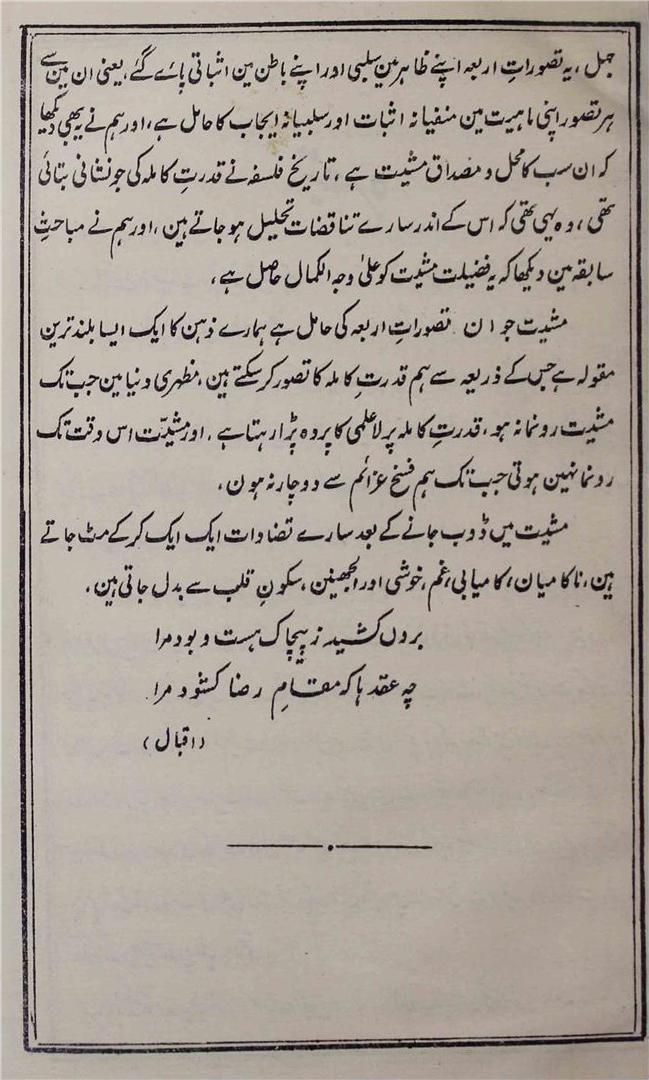 جہل، یہ تصوراتِ اربعہ اپنے ظاہر مین سلبی اور اپنے باطن مین اثباتی پائے گئے، یعنی ان مین سے
ہر تصور اپنی ماہیت مین منفیانہ اثبات اور سلبیانہ ایجاب کا حامل ہے، اور ہم نے یہ بھی دیکھا
کہ ان سب کا محل و مصداق مشیت ہے، تاریخ فلسفہ نے قدرتِ کاملہ کی جو نشانی بتائی
تھی، وہ یہی تھی کہ اس کے اندر سارے تناقضات تحلیل ہو جاتے ہین، اور ہم نے مباحثِ
سابقہ مین دیکھا کہ یہ فضیلت مشیت کو علیٰ وجہ الکمال حاصل ہے،
مشیت جو ان تصوراتِ اربعہ کی حامل ہے ہمارے ذہن کا ایک ایسا بلند ترین
مقولہ ہے جس کے ذریعہ سے ہم قدرتِ کاملہ کا تصور کر سکتے ہین، مظہری دنیا مین جب تک
مشیت رونما نہ ہو، قدرتِ کاملہ پر لا علمی کا پردہ پڑا رہتا ہے، اور مشیّت اس وقت تک
رونما نہین ہوتی جب تک ہم فسخ عزائم سے دوچار نہ ہون،
مشیت میں ڈوب جانے کے بعد سارے تضادات ایک ایک کر کے مٹ جاتے
ہین، ناکامیان، کامیابی، غم، خوشی اور الجھنین، سکونِ قلب سے بدل جاتی ہین،
بروں کشید ز پیچاک ہست و بود مرا
چہ عقدہا کہ مقامِ رضا کشود مرا
(اقبال)